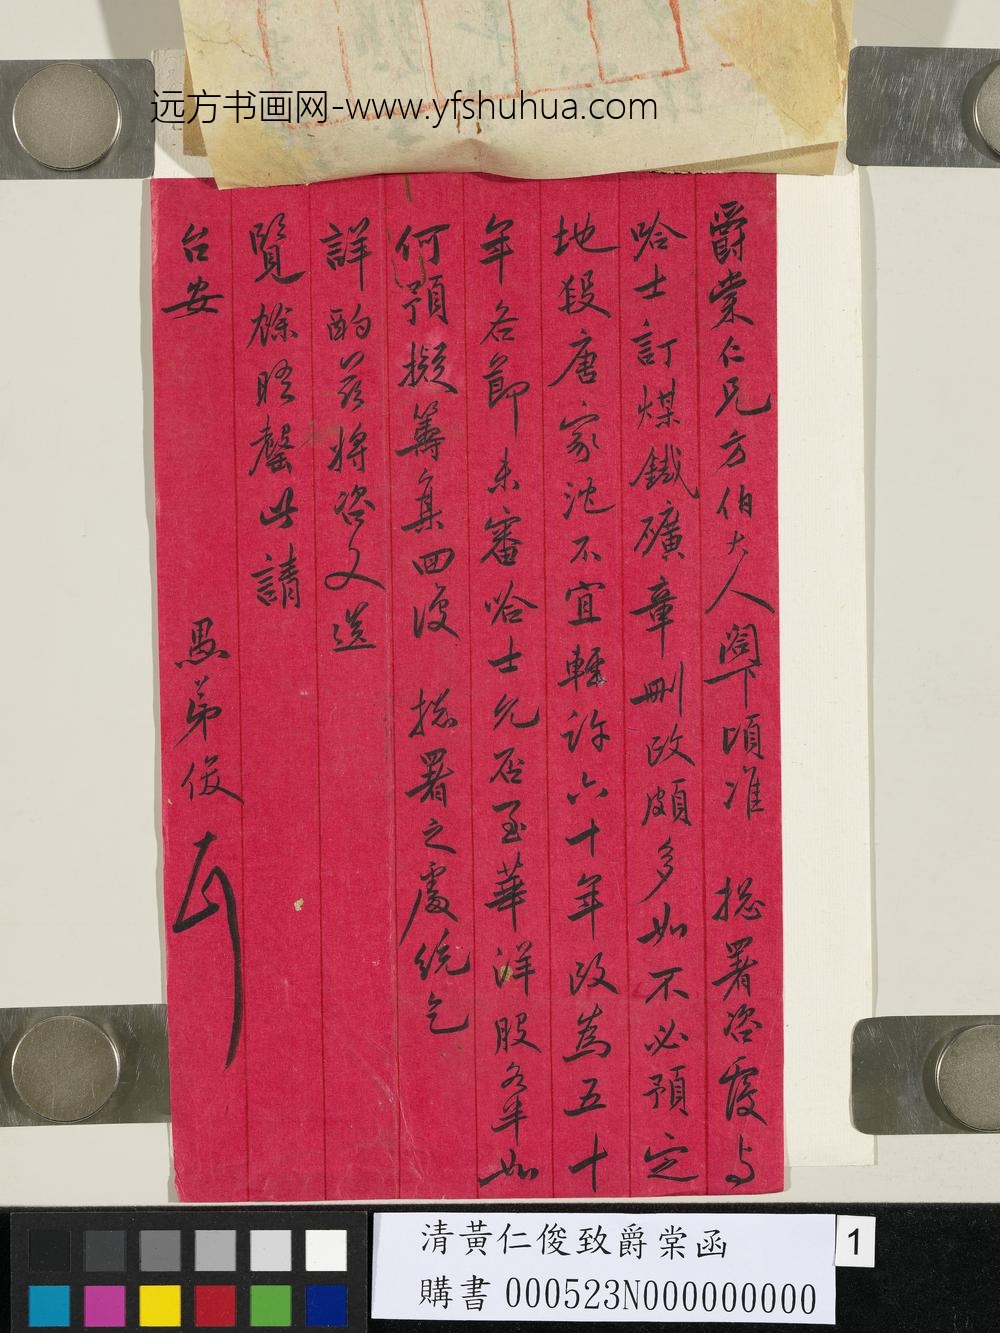 远方书画网-www.yfshuhua.com
爵棠仁兄方伯大人閣下頃准 總署咨覆与
哈士訂煤鐵礦章刪改頗多如不必預定
地段唐家沱不宜輕許六十年改為五十
年各節未審哈士允否至華洋股各半如
何預擬籌集回復 總署之處統乞
詳酌茲將咨文送
覽餘晤罄此請
台安
愚弟俊
清黃仁俊致爵棠函
購書 000523N000000000
1